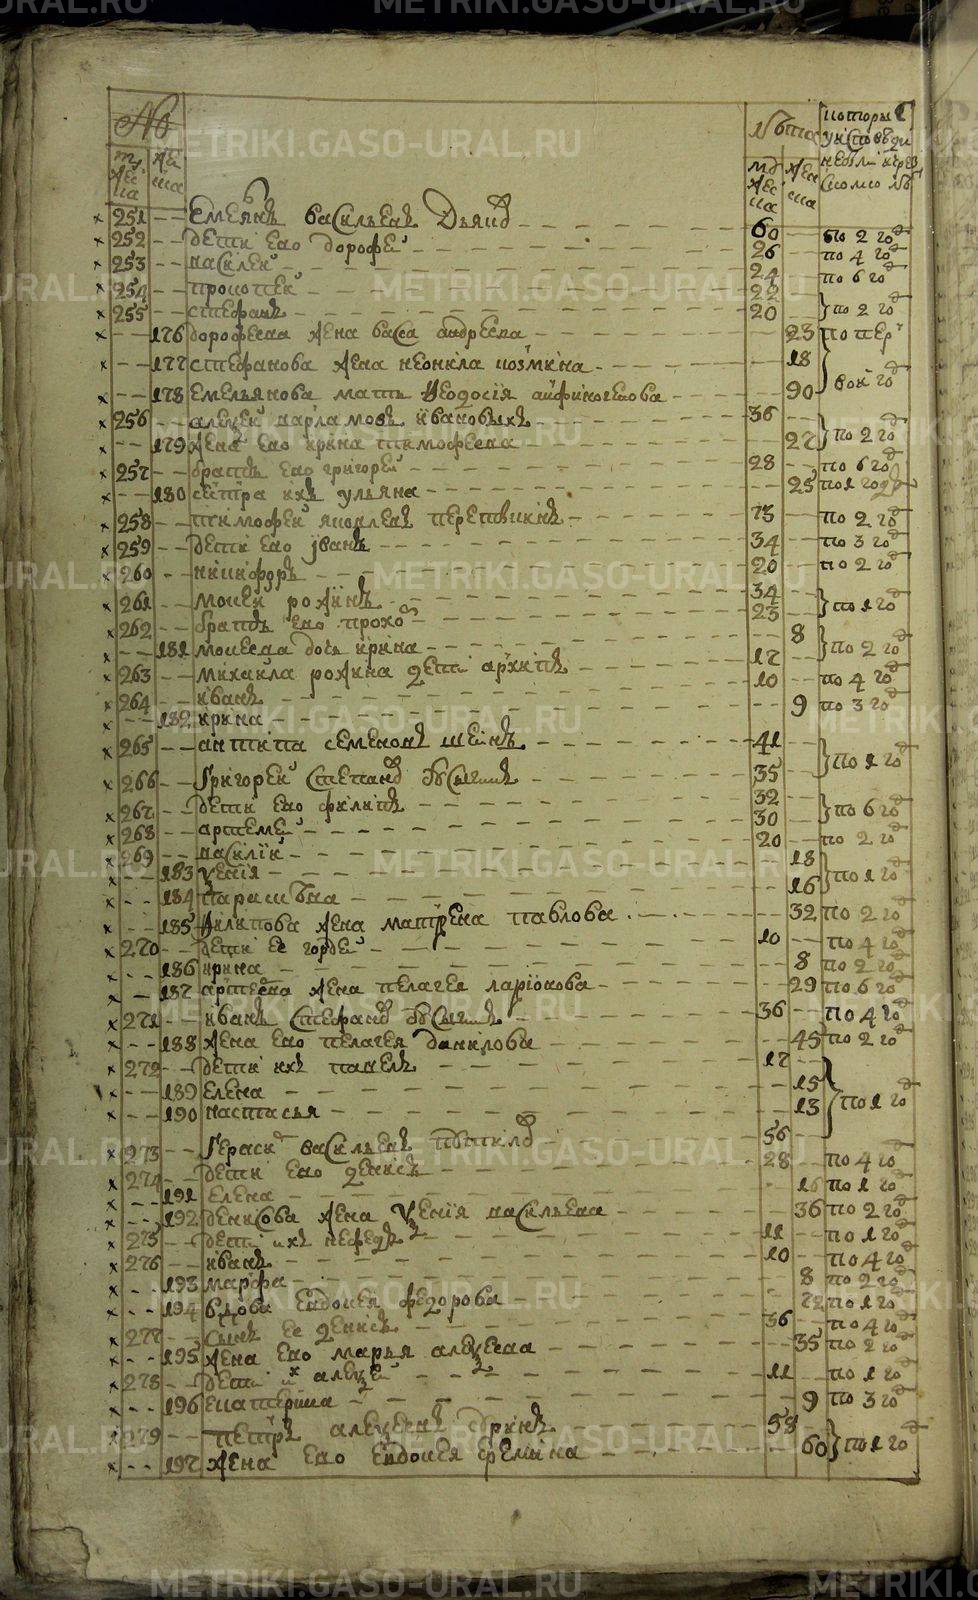 METRIKI.GASO-URAL.RU
№ лѣта которы
у исповѣди
мужеска жена мужеска жена
сколко лѣ
251 емелянъ василевъ 60 по 2 го
252 дети ево дорофеи 26 по 4 го
253 василеи 24 по 6 го
254 прокопеи 22
255 стефанъ 20 по 2 го
176 дорофеева жена васа андреева 23 по пер
177 стефанова жена неонила козмина 18
178 емельянова мать феодосія анфиногенова 90 вои го
256 алеѯеи варламовъ ивановыхъ 36
179 жена ево ирина тимофеева 27 по 2 го
257 братъ ево григореи 28 по 6 го
180 сестра ихъ ульяна 25 по 1 году
258 тимофеи яковлевъ 73 по 2 го
259 дети ево іванъ 34 по 3 го
260 никифоръ 20 по 2 го
261 моисеи рожинъ 34
262 братъ ево прохо 23 по 1 го
181 моисеева дочь ирина 8
263 михаила рожина дети архипъ 17 по 2 го
264 иванъ 10 по 4 го
182 ирина 9 по 3 го
265 антипа семеновъ шеинъ 41
266 григореи степанов 35 по 1 го
267 дети ево филипъ 32
268 артемеи 30 по 6 го
269 василіи 20 по 2 го
183 ѯенія 18
184 парасковья 16 по 1 го
185 филипова жена матрена павлова 32 по 2 го
270 дети ее гордеи 10 по 4 го
186 ирина 8 по 2 го
187 артемева жена пелагея ларіонова 29 по 6 го
271 иванъ стефанов 36 по 4 го
188 жена ево пелагея данилова 45 по 2 го
272 дети ихъ павелъ 17
189 елена 15
190 настасья 13 по 1 го
273 гераси василевъ 56
274 дети ево денисъ 28 по 4 го
191 елена 16 по 1 го
192 денисова жена ѯенія васильева 36 по 2 го
275 дети ихъ нефедъ 11 по 1 го
276 иванъ 10 по 4 го
193 марфа 8 по 2 го
194 вдова евдокея федорова 72 по 1 го
277 сынъ ее денисъ 36 по 4 го
195 жена ево марья алеѯеева 35 по 2 го
278 дети их алеѯеи 11 по 1 го
196 екатерина 9 по 3 го
279 петръ алеѯеевъ 58
197 жена ево евдокея еремина 60 по 1 го